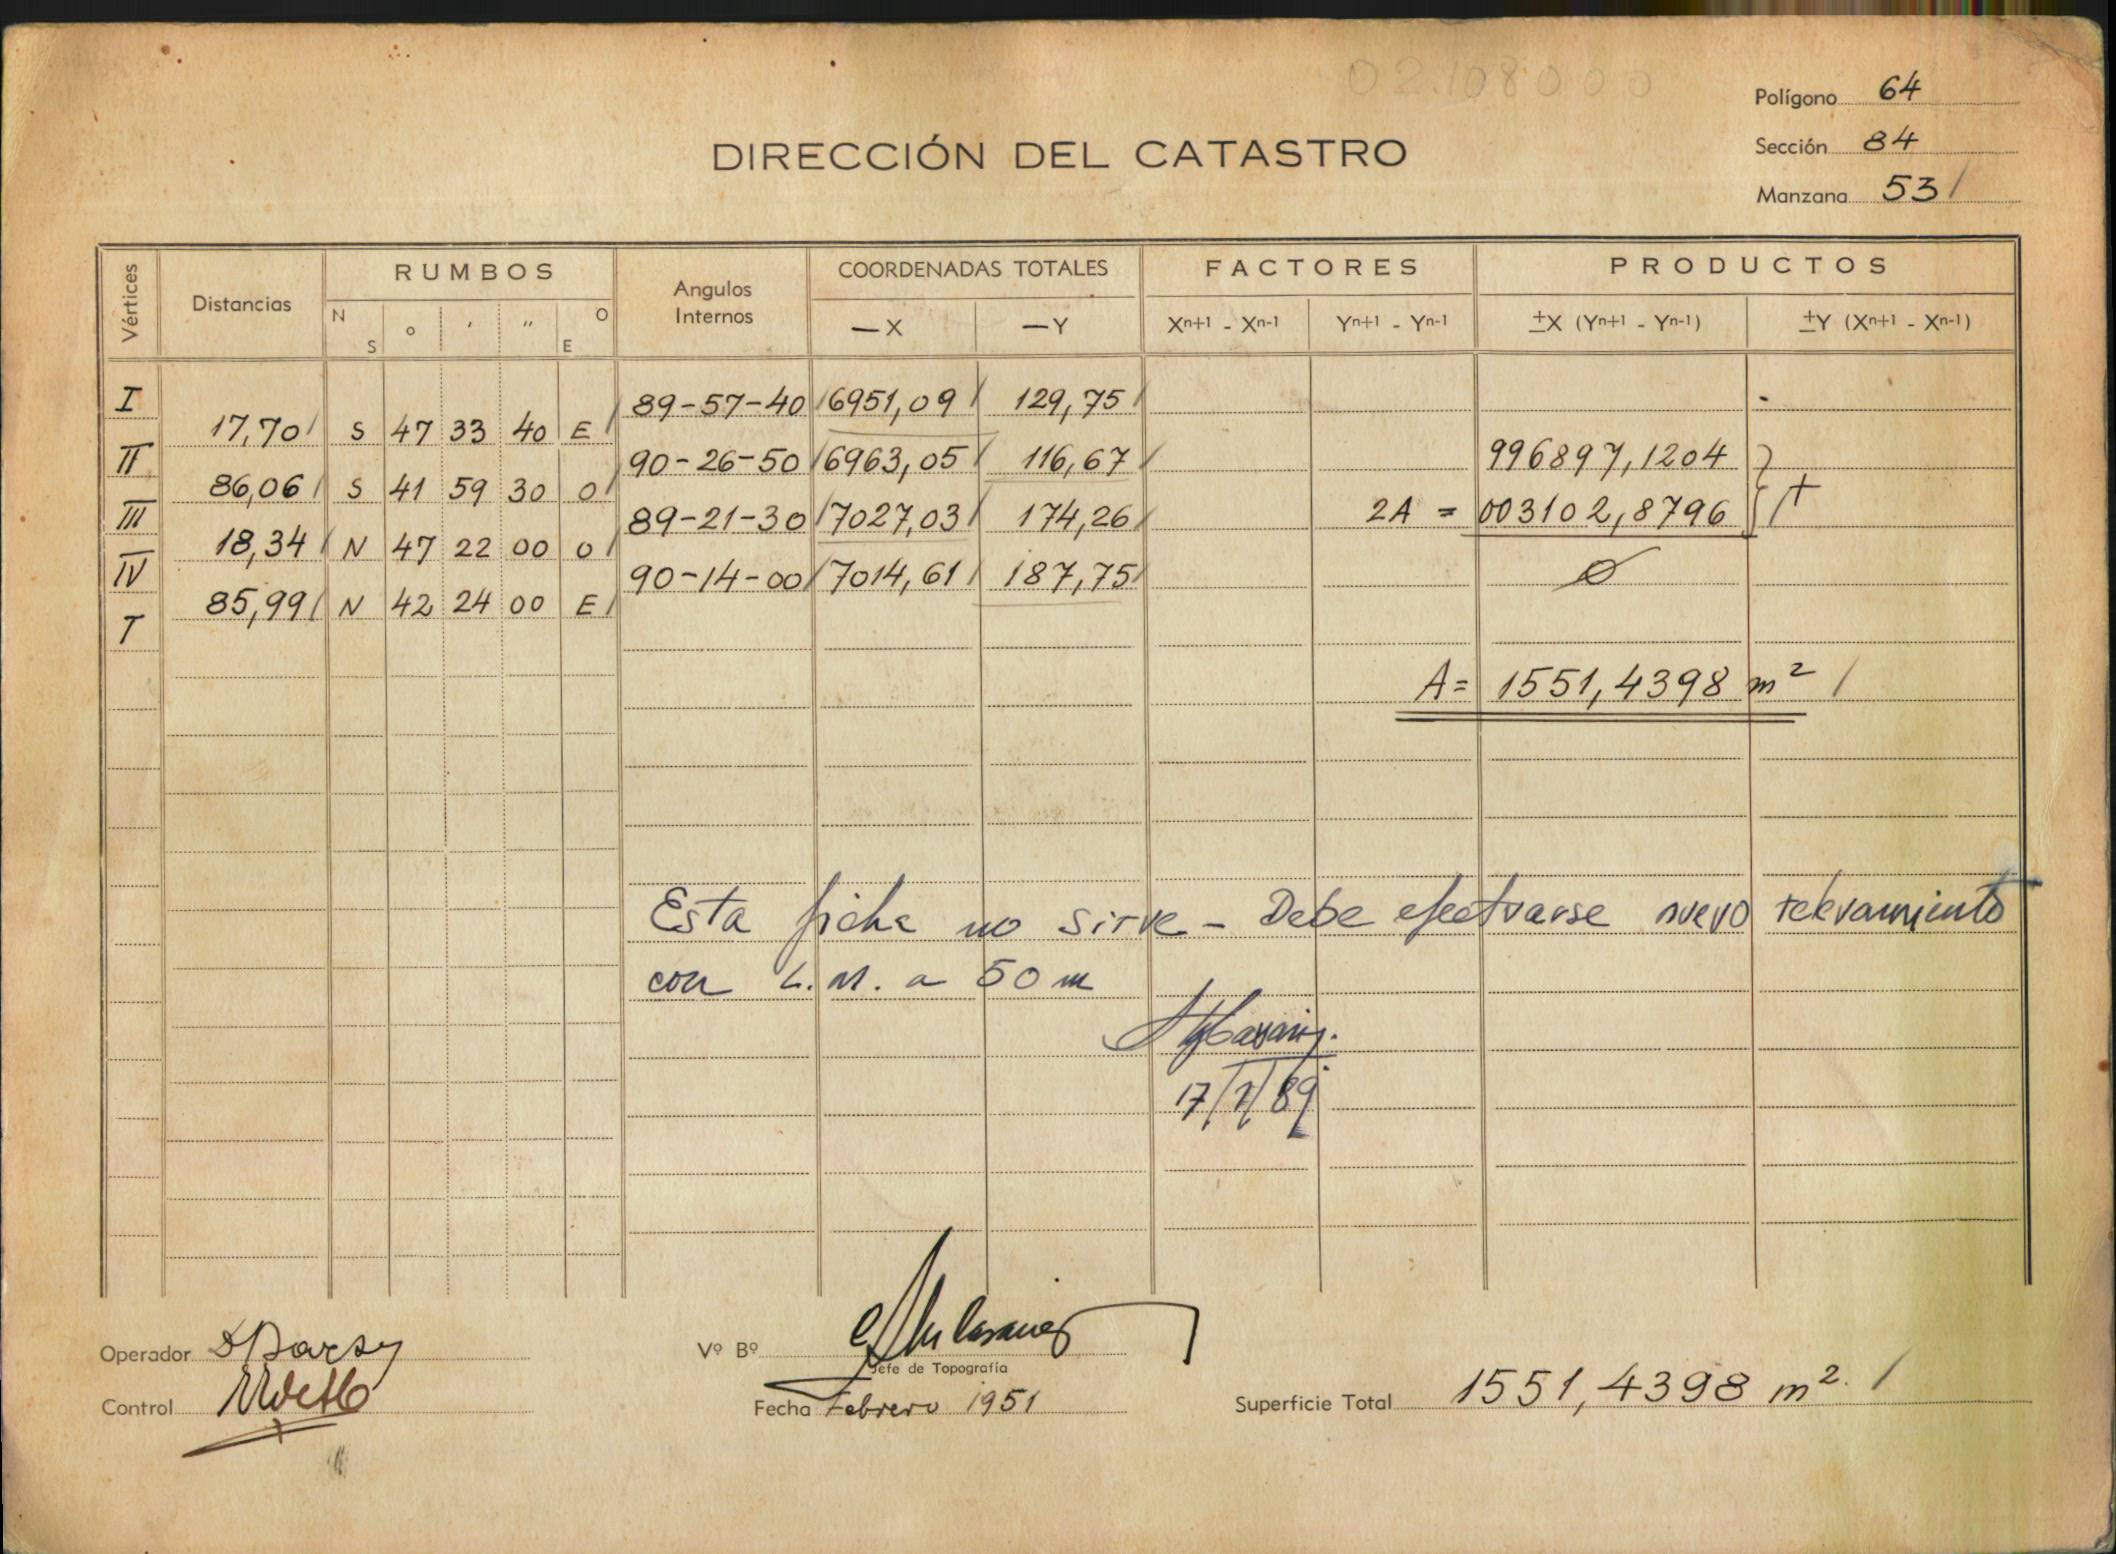 02.108000
Polígono 64
DIRECCIÓN DEL CATASTRO
Sección 84
Manzana 53
Vértices Distancias RUMBOS Angulos Internos COORDENADAS TOTALES FACTORES PRODUCTOS
N S ° ' " O E —X —Y Xn+1 - Xn-1 Yn+1 - Yn-1 ±X (Yn+1 - Yn-1) ±Y (Xn+1 - Xn-1)
I 89-57-40 6951,09 129,75
17,70 S 47 33 40 E
II 90-26-50 6963,05 116,67 996897,1204
86,06 S 41 59 30 O
III 89-21-30 7027,03 174,26 2A = 003102,8796 +
18,34 N 47 22 00 O
IV 90-14-00 7014,61 187,75 0
85,99 N 42 24 00 E
I
A = 1551,4398 m²
Esta ficha no sirve - Debe efectuarse nuevo relevamiento
con L.M. a 50 m
17/ /89
Operador
Vº Bº
Jefe de Topografía
Control
Fecha Febrero 1951
Superficie Total 1551,4398 m².